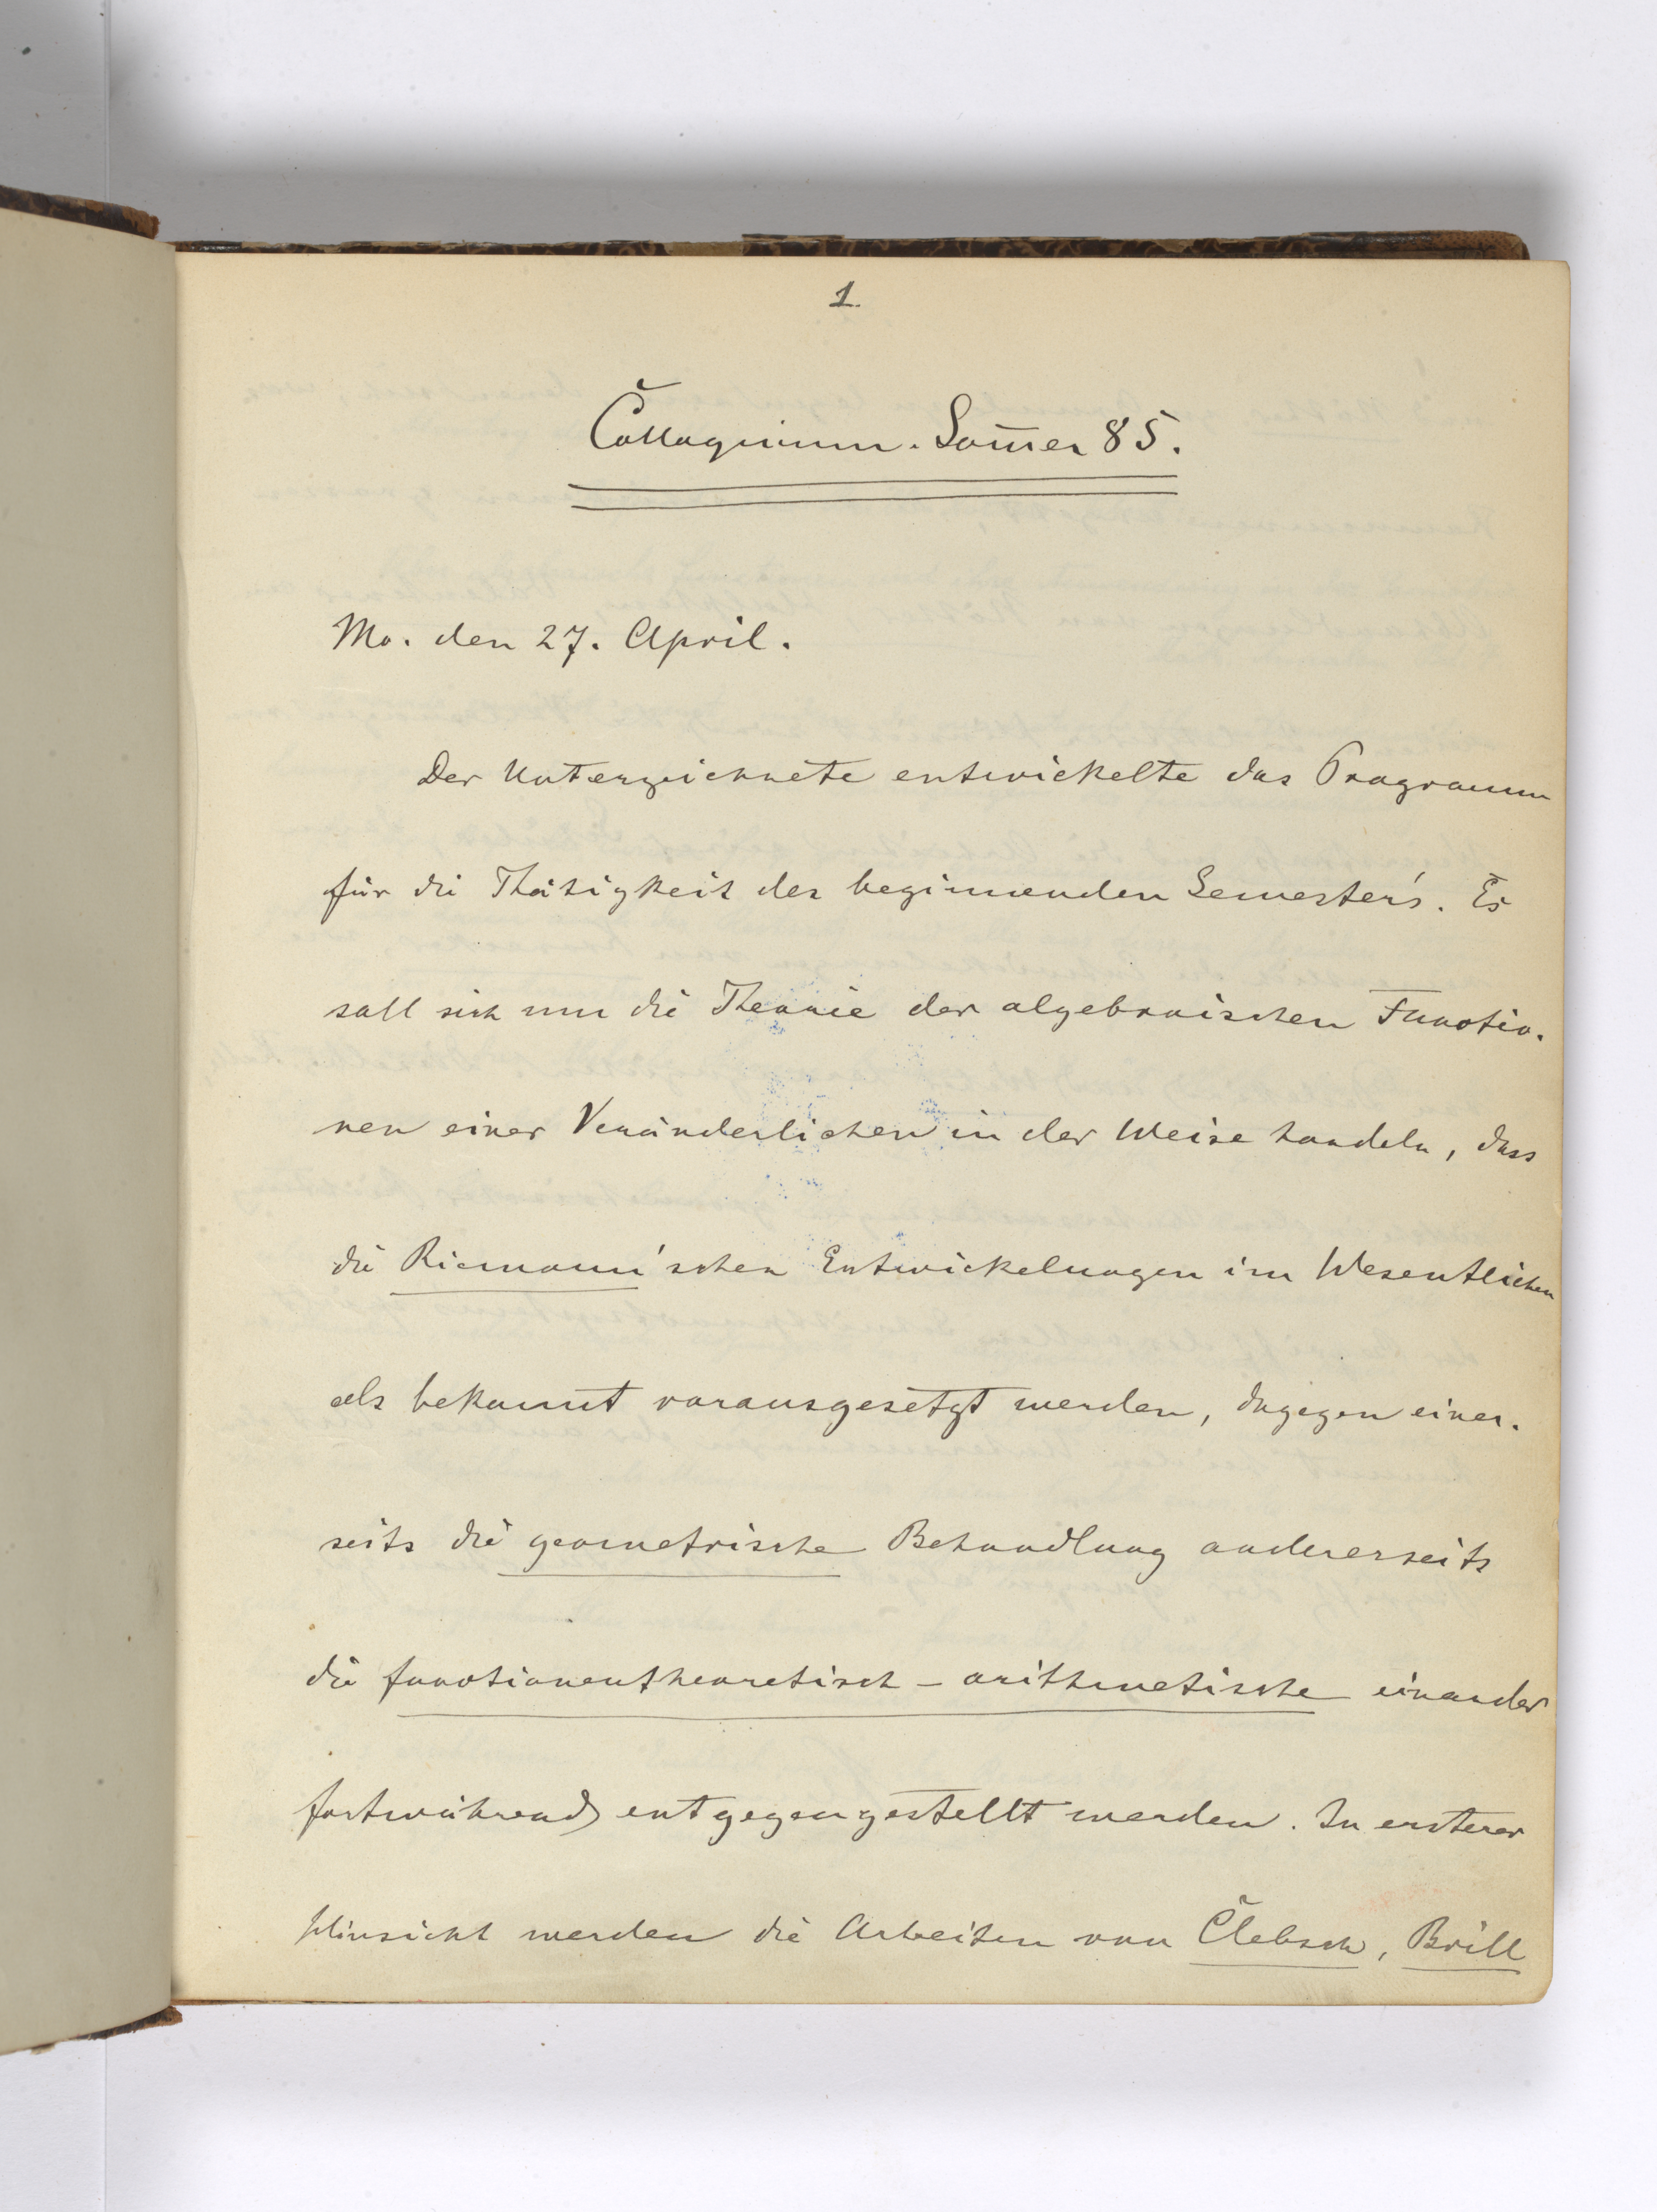 1.
Colloquium. Som̅er 85.
Mo. den 27. April.
Der Unterzeichnete entwickelte das Programm
für die Thätigkeit des beginnenden Semester's. Es
soll sich nun die Theorie der algebraischen Functio-
nen einer Veränderlichen in der Weise handeln, dass
die Riemann'schen Entwickelungen im Wesentlichen
als bekannt vorausgesetzt werden, dagegen einer-
seits die geometrische Behandlung andererseits
die functionentheoretisch-arithmetische einander
fortwährend entgegengestellt werden. In ersterer
Hinsicht werden die Arbeiten von Clebsch, Brill